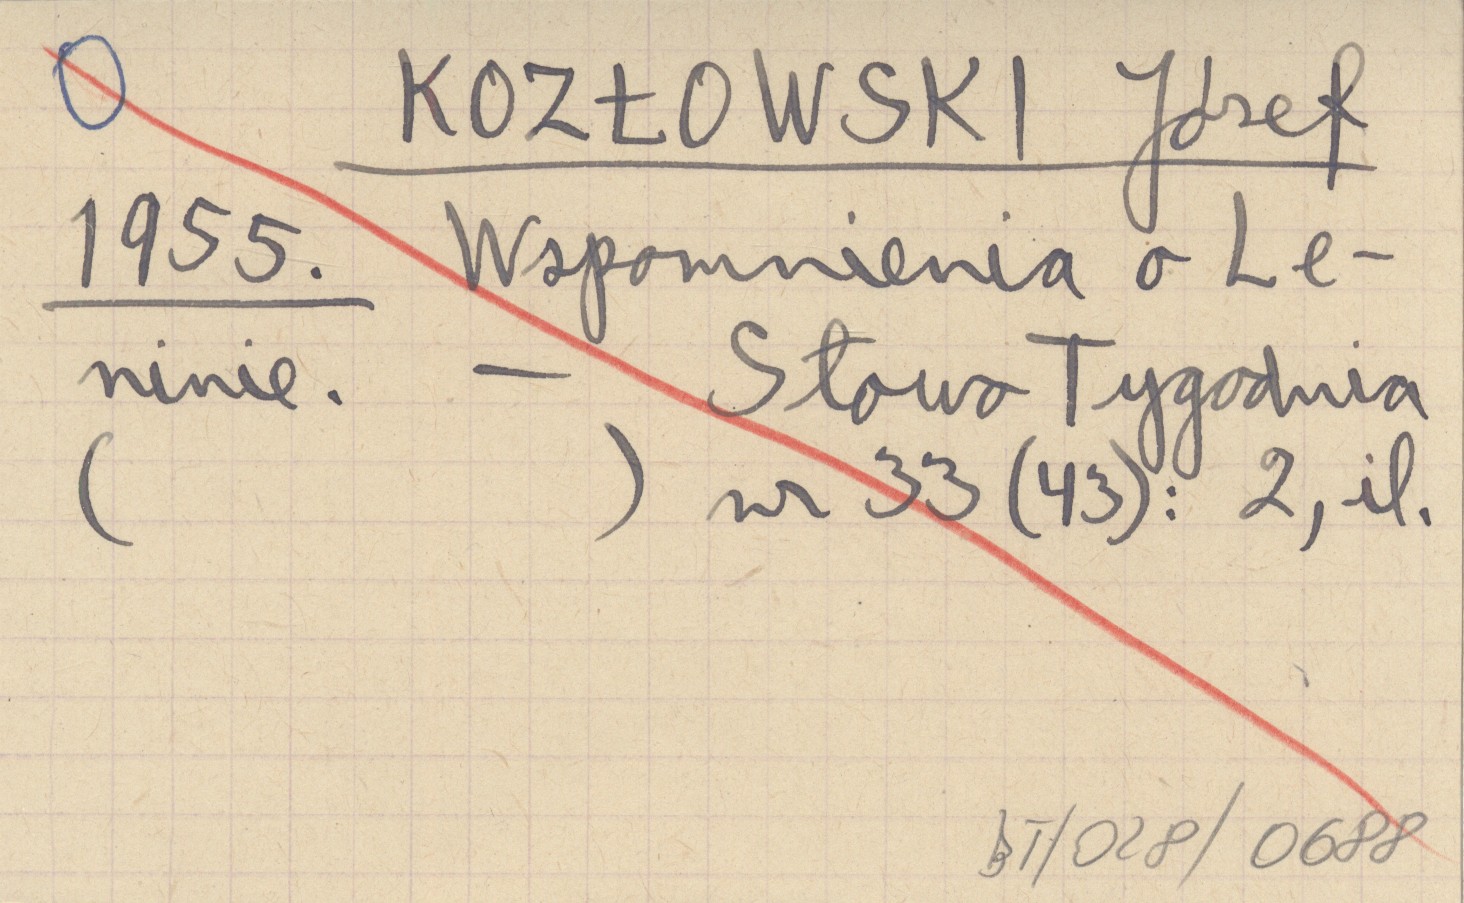 KOZŁOWSKI Józef
1955. Wspomnienia o Le-
ninie. — Słowo Tygodnia
( ) nr 33 (43): 2, il.
BT/028/0688